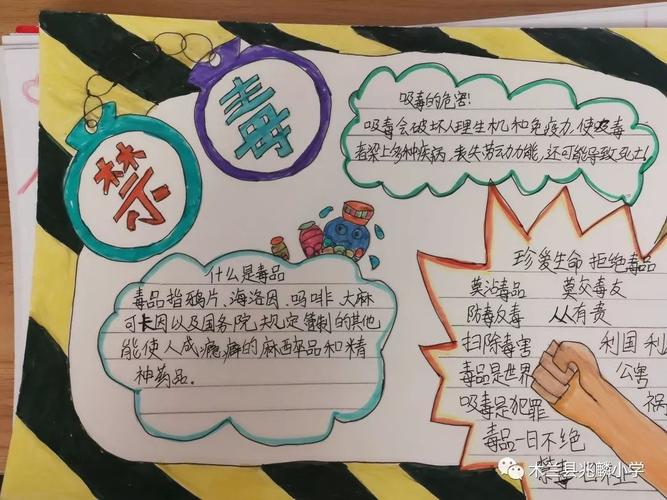 禁
毒
吸毒的危害:
吸毒会破坏人理生机和免疫力,使吸毒
者染上多种疾病,丧失劳动力能,还可能导致死亡
什么是毒品
毒品指鸦片、海洛因、吗啡、大麻
可卡因以及国务院,规定管制的其他
能使人成瘾癖的麻醉品和精
神药品。
珍爱生命 拒绝毒品
莫沾毒品 莫交毒友
防毒反毒 从人有责
扫除毒害 利国利
毒品是世界 公害
吸毒是犯罪 祸
毒品一日不绝
禁毒一日不止
木兰县兆麟小学